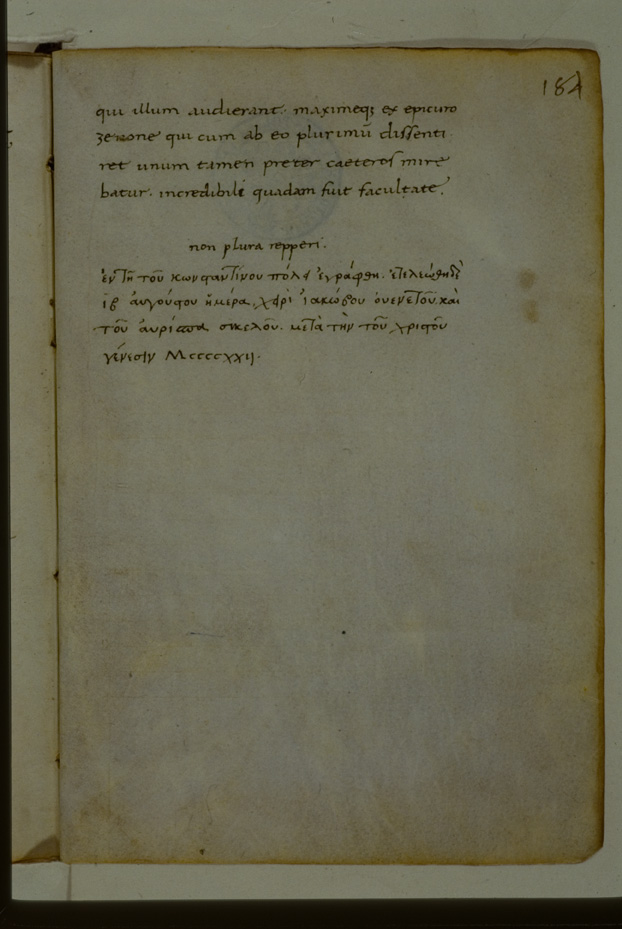 184
qui illum audierant. maximeq; ex epicuro
zenone qui cum ab eo plurimū dissenti
ret unum tamen preter caeteros mire
batur. incredibili quadam fuit facultate.
non plura repperi.
ἐν τῆ τοῦ κωνσταντίνου πόλει ἐγράφθη. ἐτελεώθη δὲ
ιβ αὐγούστου ἡμέρα. χειρὶ ἰακώβου οὐενετοῦ. καὶ
τοῦ αὐρίσπα σικελοῦ. μετὰ τὴν τοῦ χριστοῦ
γένεσιν MCCCCXXII.